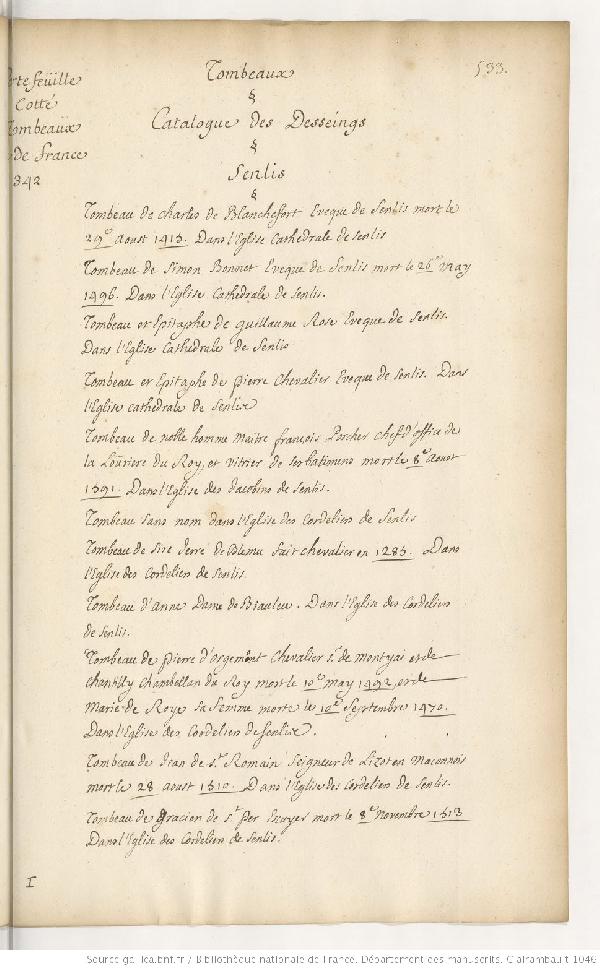 Tombeaux
533.
rtefeuille
Cotté
Tombeaux
de France
342
§
Catalogue des Desseings
§
Senlis
§
Tombeau de charles de Blanchefort Eveque de Senlis mort le
29e Aoust 1415. Dans l'Eglise Cathedrale de Senlis
Tombeau de Simon Bonnet Eveque de Senlis mort le 26e may
1496. Dans l'Eglise Cathedrale de Senlis.
Tombeau et Epitaphe de guillaume Rose Eveque de Senlis.
Dans l'Eglise Cathedrale de Senlis
Tombeau et Epitaphe de pierre Chevalier Eveque de Senlis. Dans
l'Eglise cathedrale de Senlis
Tombeau de noble homme Maitre françois Porcher chef d'office de
la Louriere du Roy, et vitrier de ses batimens mort le 8e Aoust
1591. Dans l'Eglise des Jacobins de Senlis.
Tombeau sans nom dans l'Eglise des Cordeliers de Senlis
Tombeau de Sire de fait chevalier en 1285. Dans
l'Eglise des Cordeliers de Senlis.
Tombeau d'Anne Dame de . Dans l'Eglise des Cordeliers
de Senlis.
Tombeau de pierre d'orgemont Chevalier sr. de montyai et de
Chantilly Chambellan du Roy mort le 10e may 1492, et de
Marie de Roye sa femme morte le 10e Septembre 1470.
Dans l'Eglise des Cordeliers de Senlis.
Tombeau de Jean de St. Romain Seigneur de Lizot en Maconnois
mort le 28 aoust 1510. Dans l'Eglise des Cordeliers de Senlis.
Tombeau de gracien de St. per Ecuyer mort le 8e Novembre 1513
Dans l'Eglise des Cordeliers de Senlis.
I
Source gallica.bnf.fr / Bibliothèque nationale de France. Département des manuscrits. Clairambault 1046